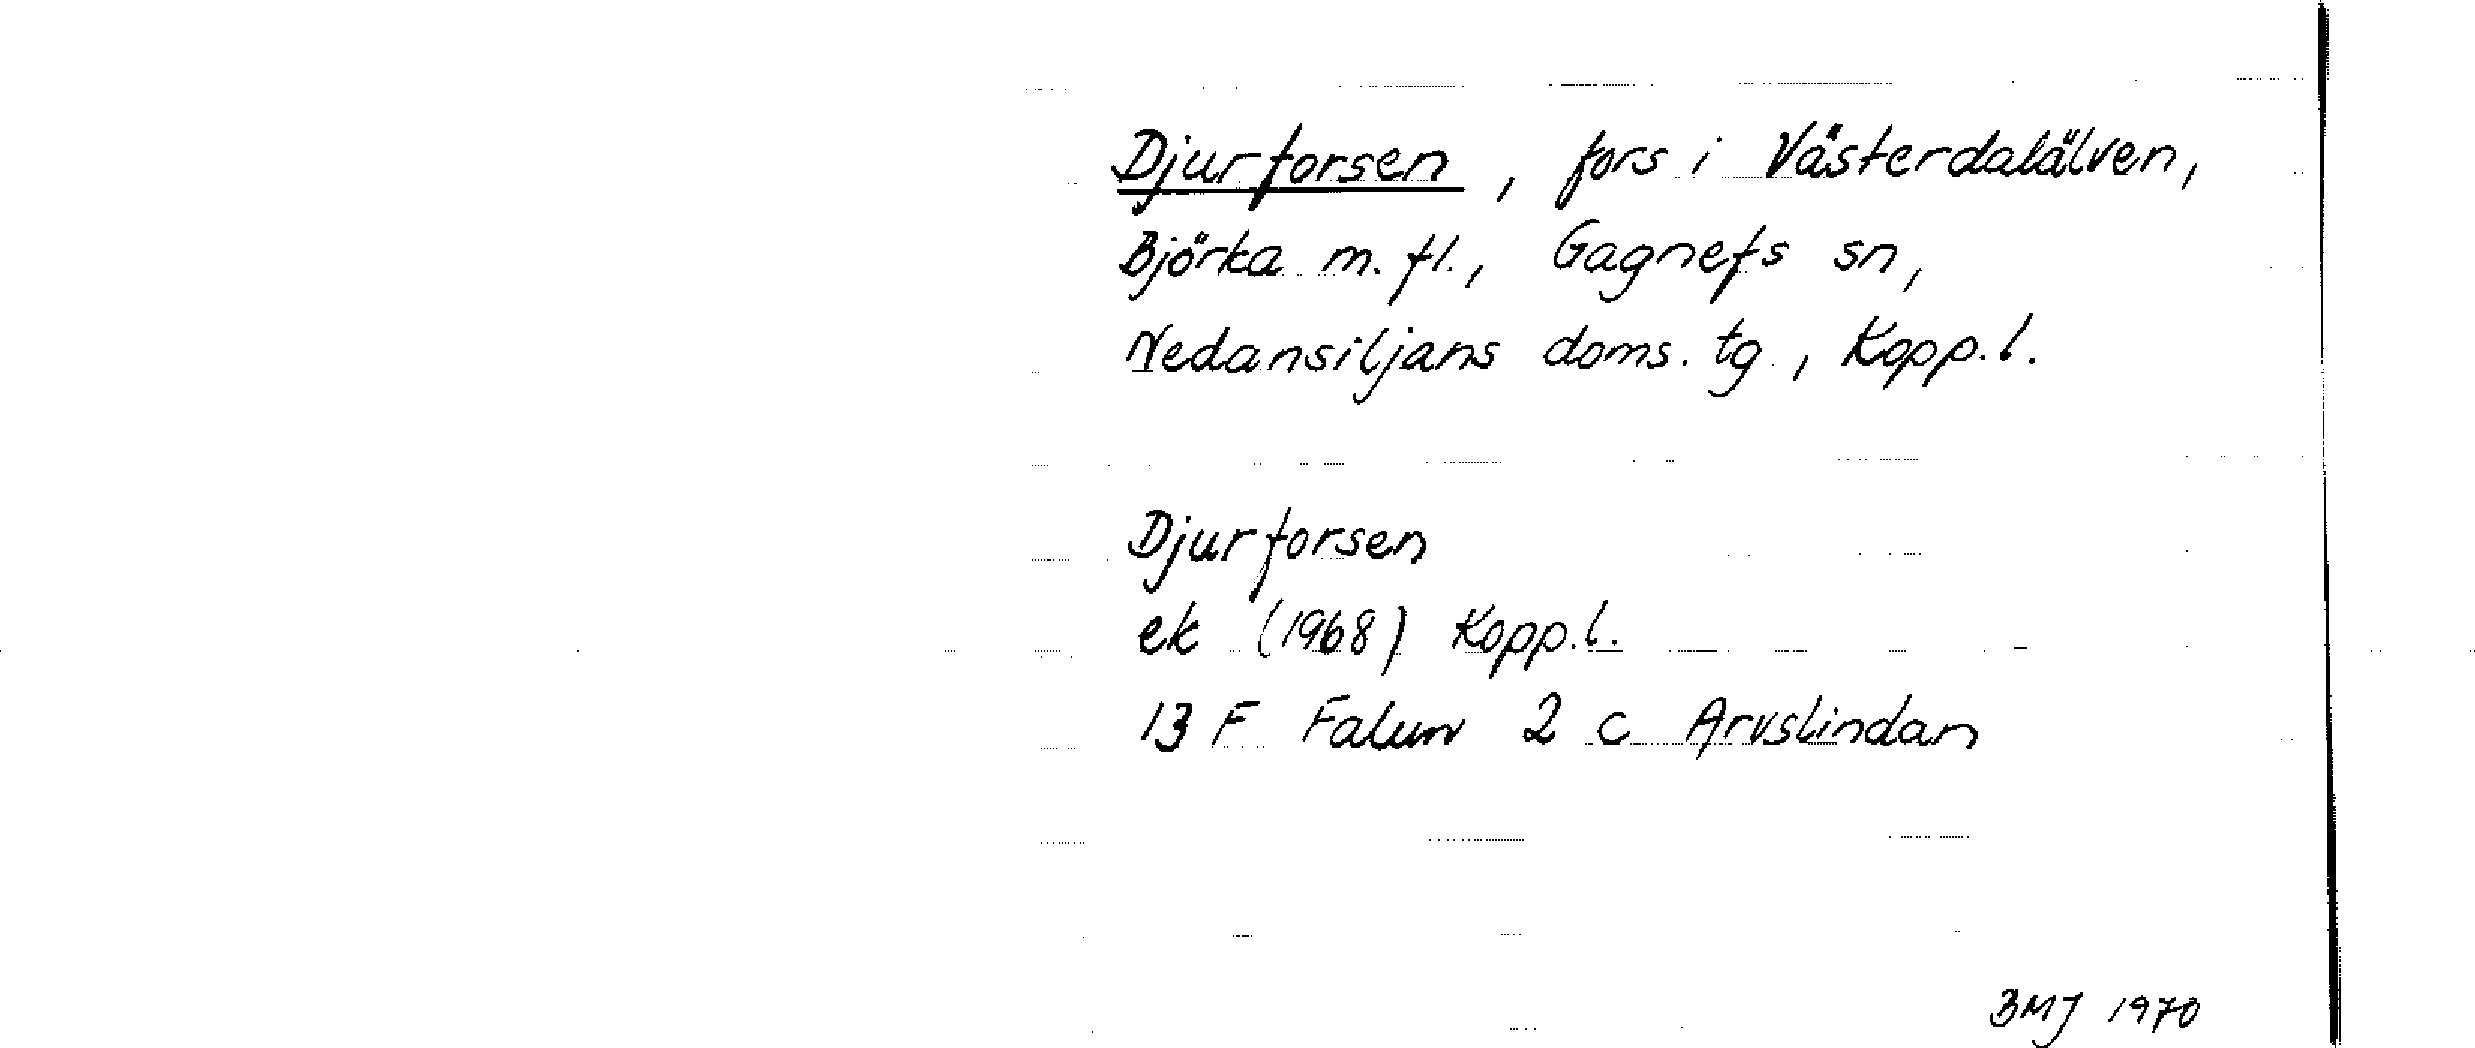 Djurforsen, fors i Västerdalälven,
Björka m. fl., Gagnefs sn,
Nedansiljans doms. tg., Kopp. l.
Djurforsen
ek (1968) Kopp. l.
13 F Falun 2 c Arvslindan
BMJ 1970